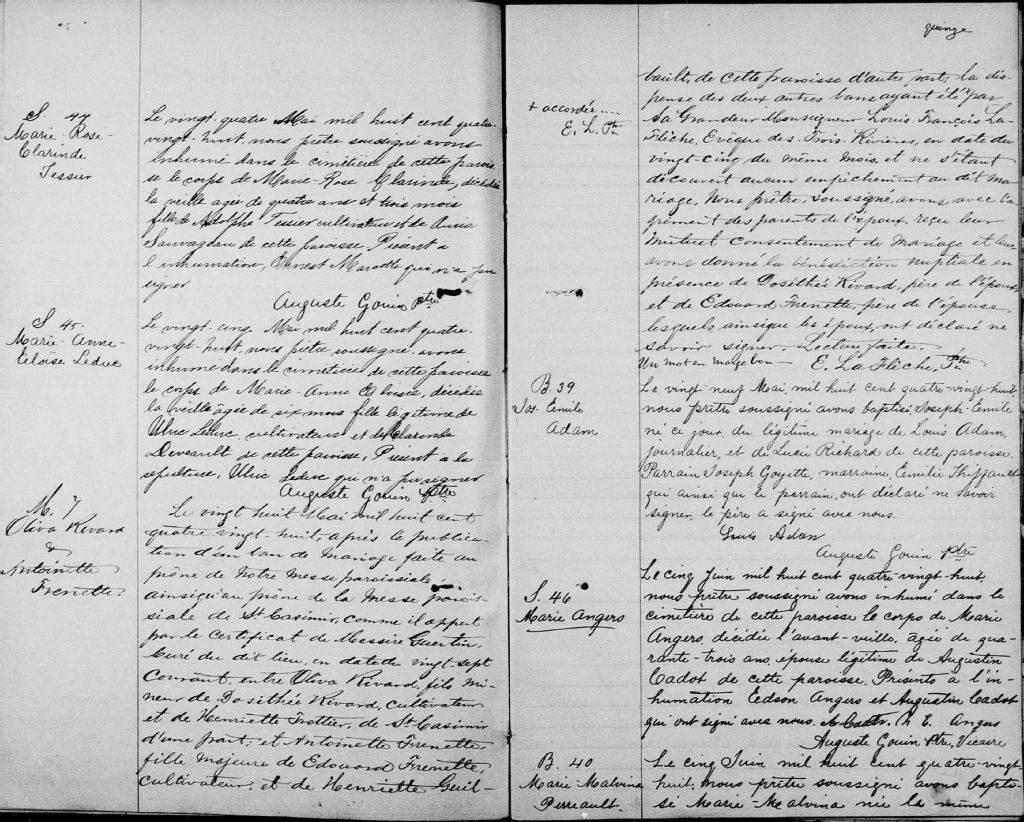 S. 44
Marie-Rose-
Clarinde
Tessier
Le vingt-quatre Mai mil huit cent quatre-
vingt-huit, nous prêtre soussigné avons
inhumé dans le cimetière de cette parois-
se le corps de Marie-Rose Clarinde, décédée
la veille agée de quatre ans et trois mois
fille de Adolphe Tessier cultivateur et de
Sauvageau de cette paroisse. Présent a
l'inhumation, Ernest Marcotte qui n'a pu
signer
Auguste Gouin ptre
S. 45.
Marie-Anne-
Eloïse Leduc
Le vingt-cinq Mai mil huit cent quatre-
vingt-huit, nous prêtre soussigné avons
inhumé dans le cimetière de cette paroisse
le corps de Marie-Anne Eloïse, décédée
la veille agée de six mois fille légitime de
Ulric Leduc, cultivateur et de Clarinda
Deveault de cette paroisse. Présent a la
sépulture, Ulric Leduc qui n'a pu signer
Auguste Gouin Ptre
M. 7
Oliva Rivard
&
Antoinette
Frenette
Le vingt huit Mai mil huit cent
quatre-vingt-huit, après la publica-
tion d'un ban de mariage faite au
prône de notre messe paroissiale
ainsi qu'au prône de la messe parois-
siale de St Casimir, comme il appert
par le certificat de Messire Guertin,
Curé du dit lieu, en date du vingt sept
Courant, entre Oliva Rivard, fils mi-
neur de Dosithée Rivard, cultivateur
et de Henriette Trottier, de St Casimir
d'une part; et Antoinette Frenette
fille majeure de Edouard Frenette,
cultivateur, et de Henriette Guil-
quinze
+ accordée
E. L. Ptre
bault, de cette paroisse d'autre part; la dis-
pense des deux autres bans ayant été + par
Sa Grandeur Monseigneur Louis François La-
Flèche, Evêque des Trois-Rivières, en date du
vingt-cinq du même mois et ne s'étant
découvert aucun empêchement au dit ma-
riage, Nous prêtre, soussigné, avons, avec l'a-
grément des parents de l'époux, reçu leur
mutuel consentement de mariage et leur
avons donné la bénédiction nuptiale en
présence de Dosithée Rivard, père de l'époux
et de Edouard Frenette, père de l'épouse
lesquels ainsi que les époux, ont déclaré ne
savoir signer. Lecture faite.
Un mot en marge bon E. LaFlèche, Ptre
B. 39
Jos. Emile
Adam
Le vingt-neuf Mai, mil huit cent quatre-vingt-huit,
nous prêtre soussigné avons baptisé Joseph-Emile
né ce jour, du légitime mariage de Louis Adam,
journalier, et de Lucie Richard de cette paroisse.
Parrain Joseph Goyette, marraine, Emilie Thiffault
qui ainsi que le parrain, ont déclaré ne savoir
signer, le père a signé avec nous.
Louis Adam
Auguste Gouin Ptre
S. 46
Marie Angers
Le cinq Juin mil huit cent quatre-vingt-huit,
nous prêtre soussigné avons inhumé dans le
cimetière de cette paroisse le corps de Marie
Angers, décédée l'avant-veille, agée de qua-
rante-trois ans, épouse légitime de Augustin
Cadot de cette paroisse. Présents à l'in-
humation Eedson Angers et Augustin Cadot
qui ont signé avec nous. E. Angers
Auguste Gouin Ptre, Vicaire
B. 40
Marie-Malvina
Perreault.
Le cinq Juin mil huit cent quatre-vingt-
huit, nous prêtre soussigné avons bapti-
sé Marie-Malvina née la même